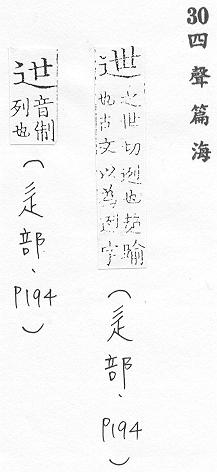 30 四聲篇海
迣 之世切迾也超踰
也古文以為迾字
(辵部、P194)
迣 音制
列也
(辵部、P194)